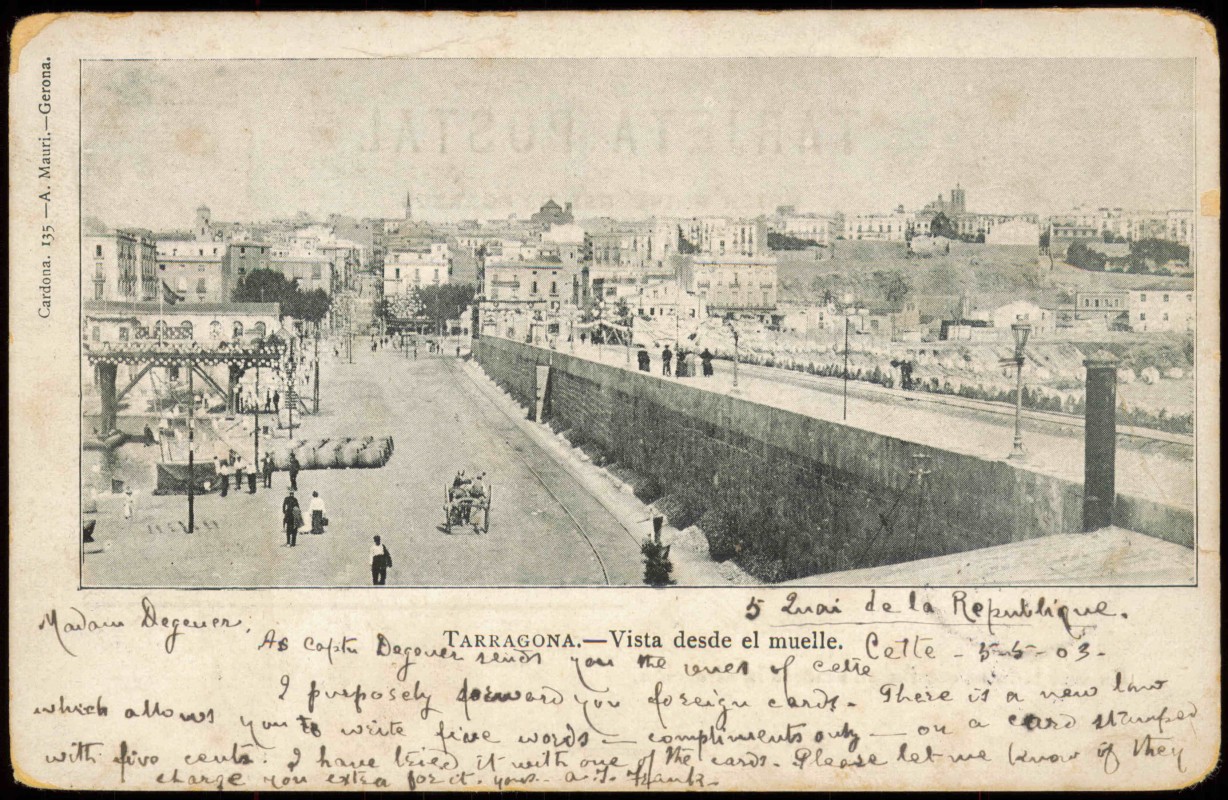 Cardona. 135 — A. Mauri. — Gerona.
TARJETA POSTAL
5 Quai de la Republique.
Cette - 5-5-03-
TARRAGONA.—Vista desde el muelle.
Madam Degener,
As Captn Degener sends you the ones of Cette
I purposely forward you foreign cards. There is a new law
which allows you to write five words — compliments only — on a card stamped
with five cents. I have tried it with one of the cards. Please let me know if they
charge you extra for it. yours A. F. Frank.